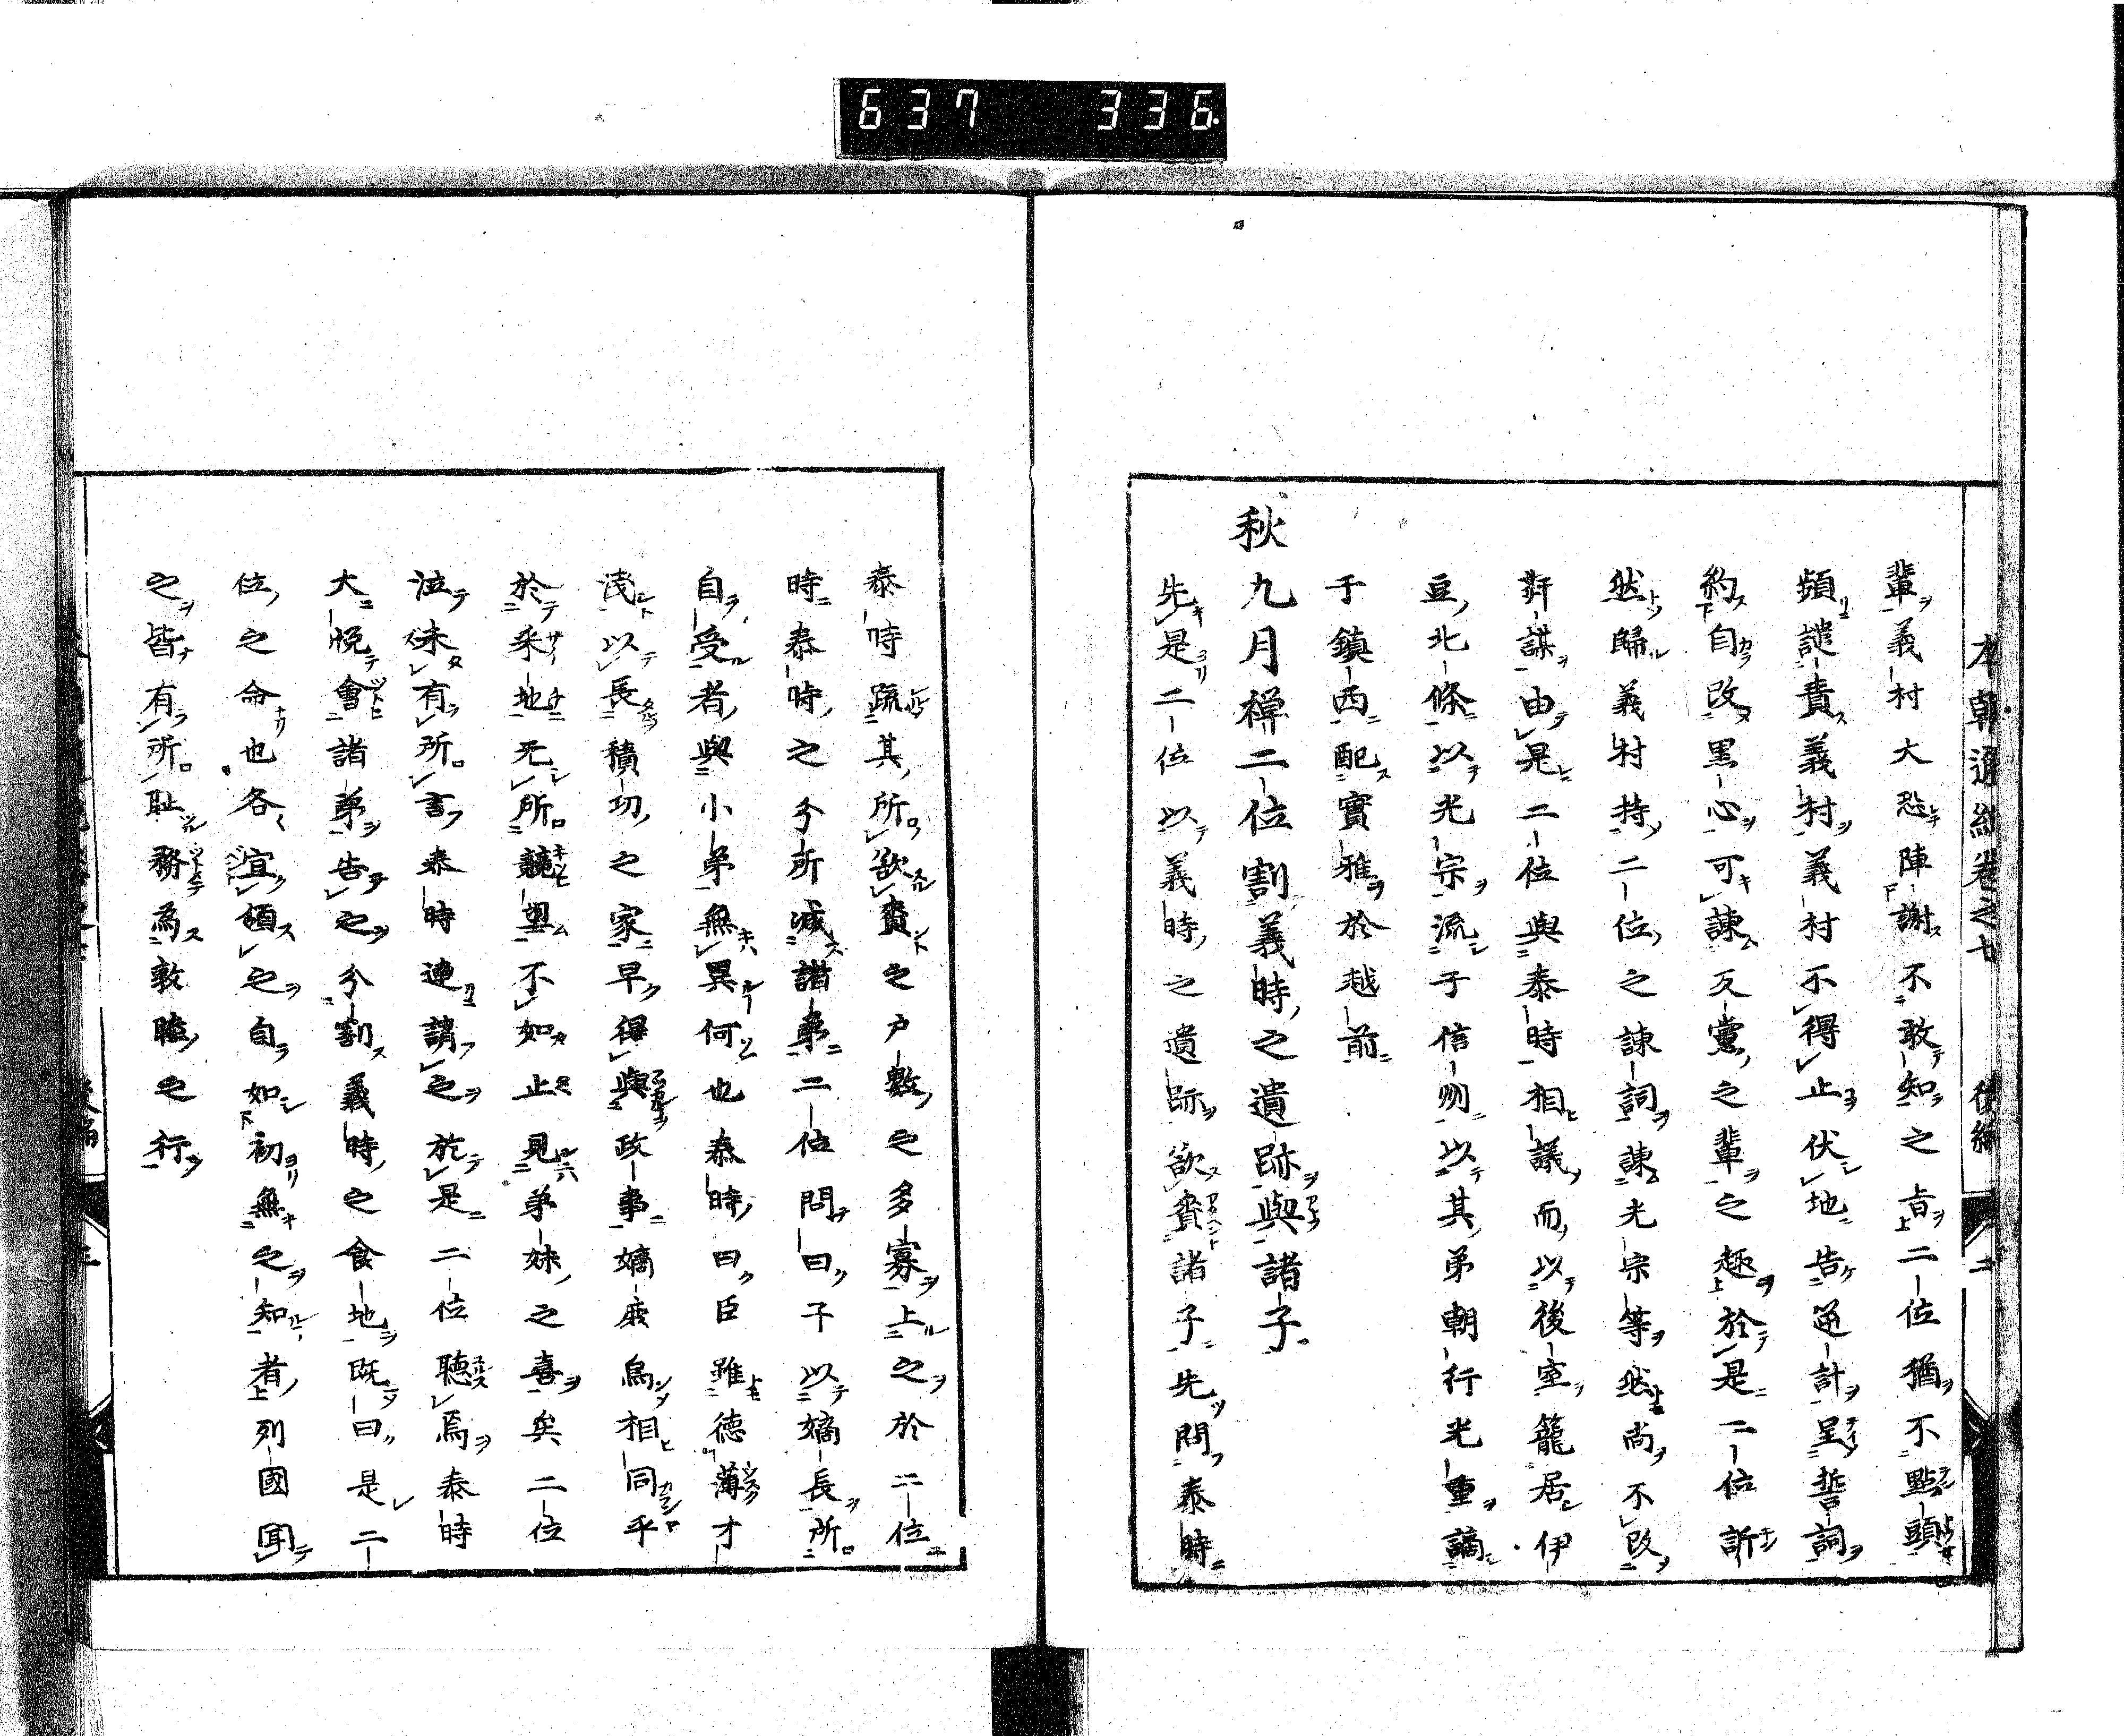 637 336
本朝通紀卷之七 後編 二
輩義村大恐陣謝不敢知之旨二位猶不點頭
頻譴責義村義村不得止伏地告逆計呈誓詞
約自改黒心可諫反黨之輩之趣於是二位訢
然歸義村持二位之諫詞諫光宗等然尚不改
姧謀由是二位與泰時相議而以後室籠居伊
豆北條以光宗流于信州以其弟朝行光重謫
于鎮西配實雅於越前
秋九月禅二位割義時之遺跡與諸子
先是二位以義時之遺跡欲賚諸子先問泰時
泰時疏其所欲賚之戸數之多寡上之於二位
時泰時之分所減諸弟二位問曰子以嫡長所
自受者與小弟無異何也泰時曰臣雖徳薄才
淺以長積功之家早得與政事嫡庶烏相同乎
於采地无所競望不如止見弟妹之喜矣二位
泣未有所言泰時連請之於是二位聴焉泰時
大悦會諸弟告之分割義時之食地既曰是二
位之命也各宜領之自如初無之知者列國聞
之皆有所耻務為敦睦之行